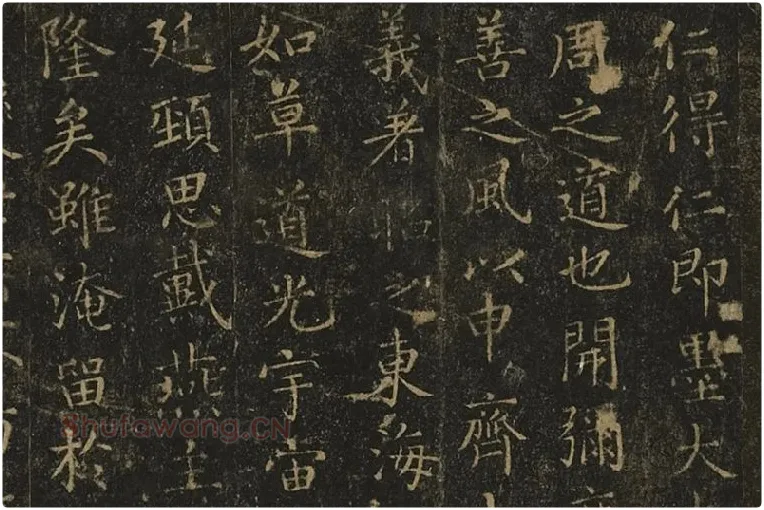 仁得仁即墨大
周之道也開彌
善之風以申齊
義著昭之東海
如草道光宇宙
延頸思戴燕主
隆矣雖淹留於
Shufawang.CN